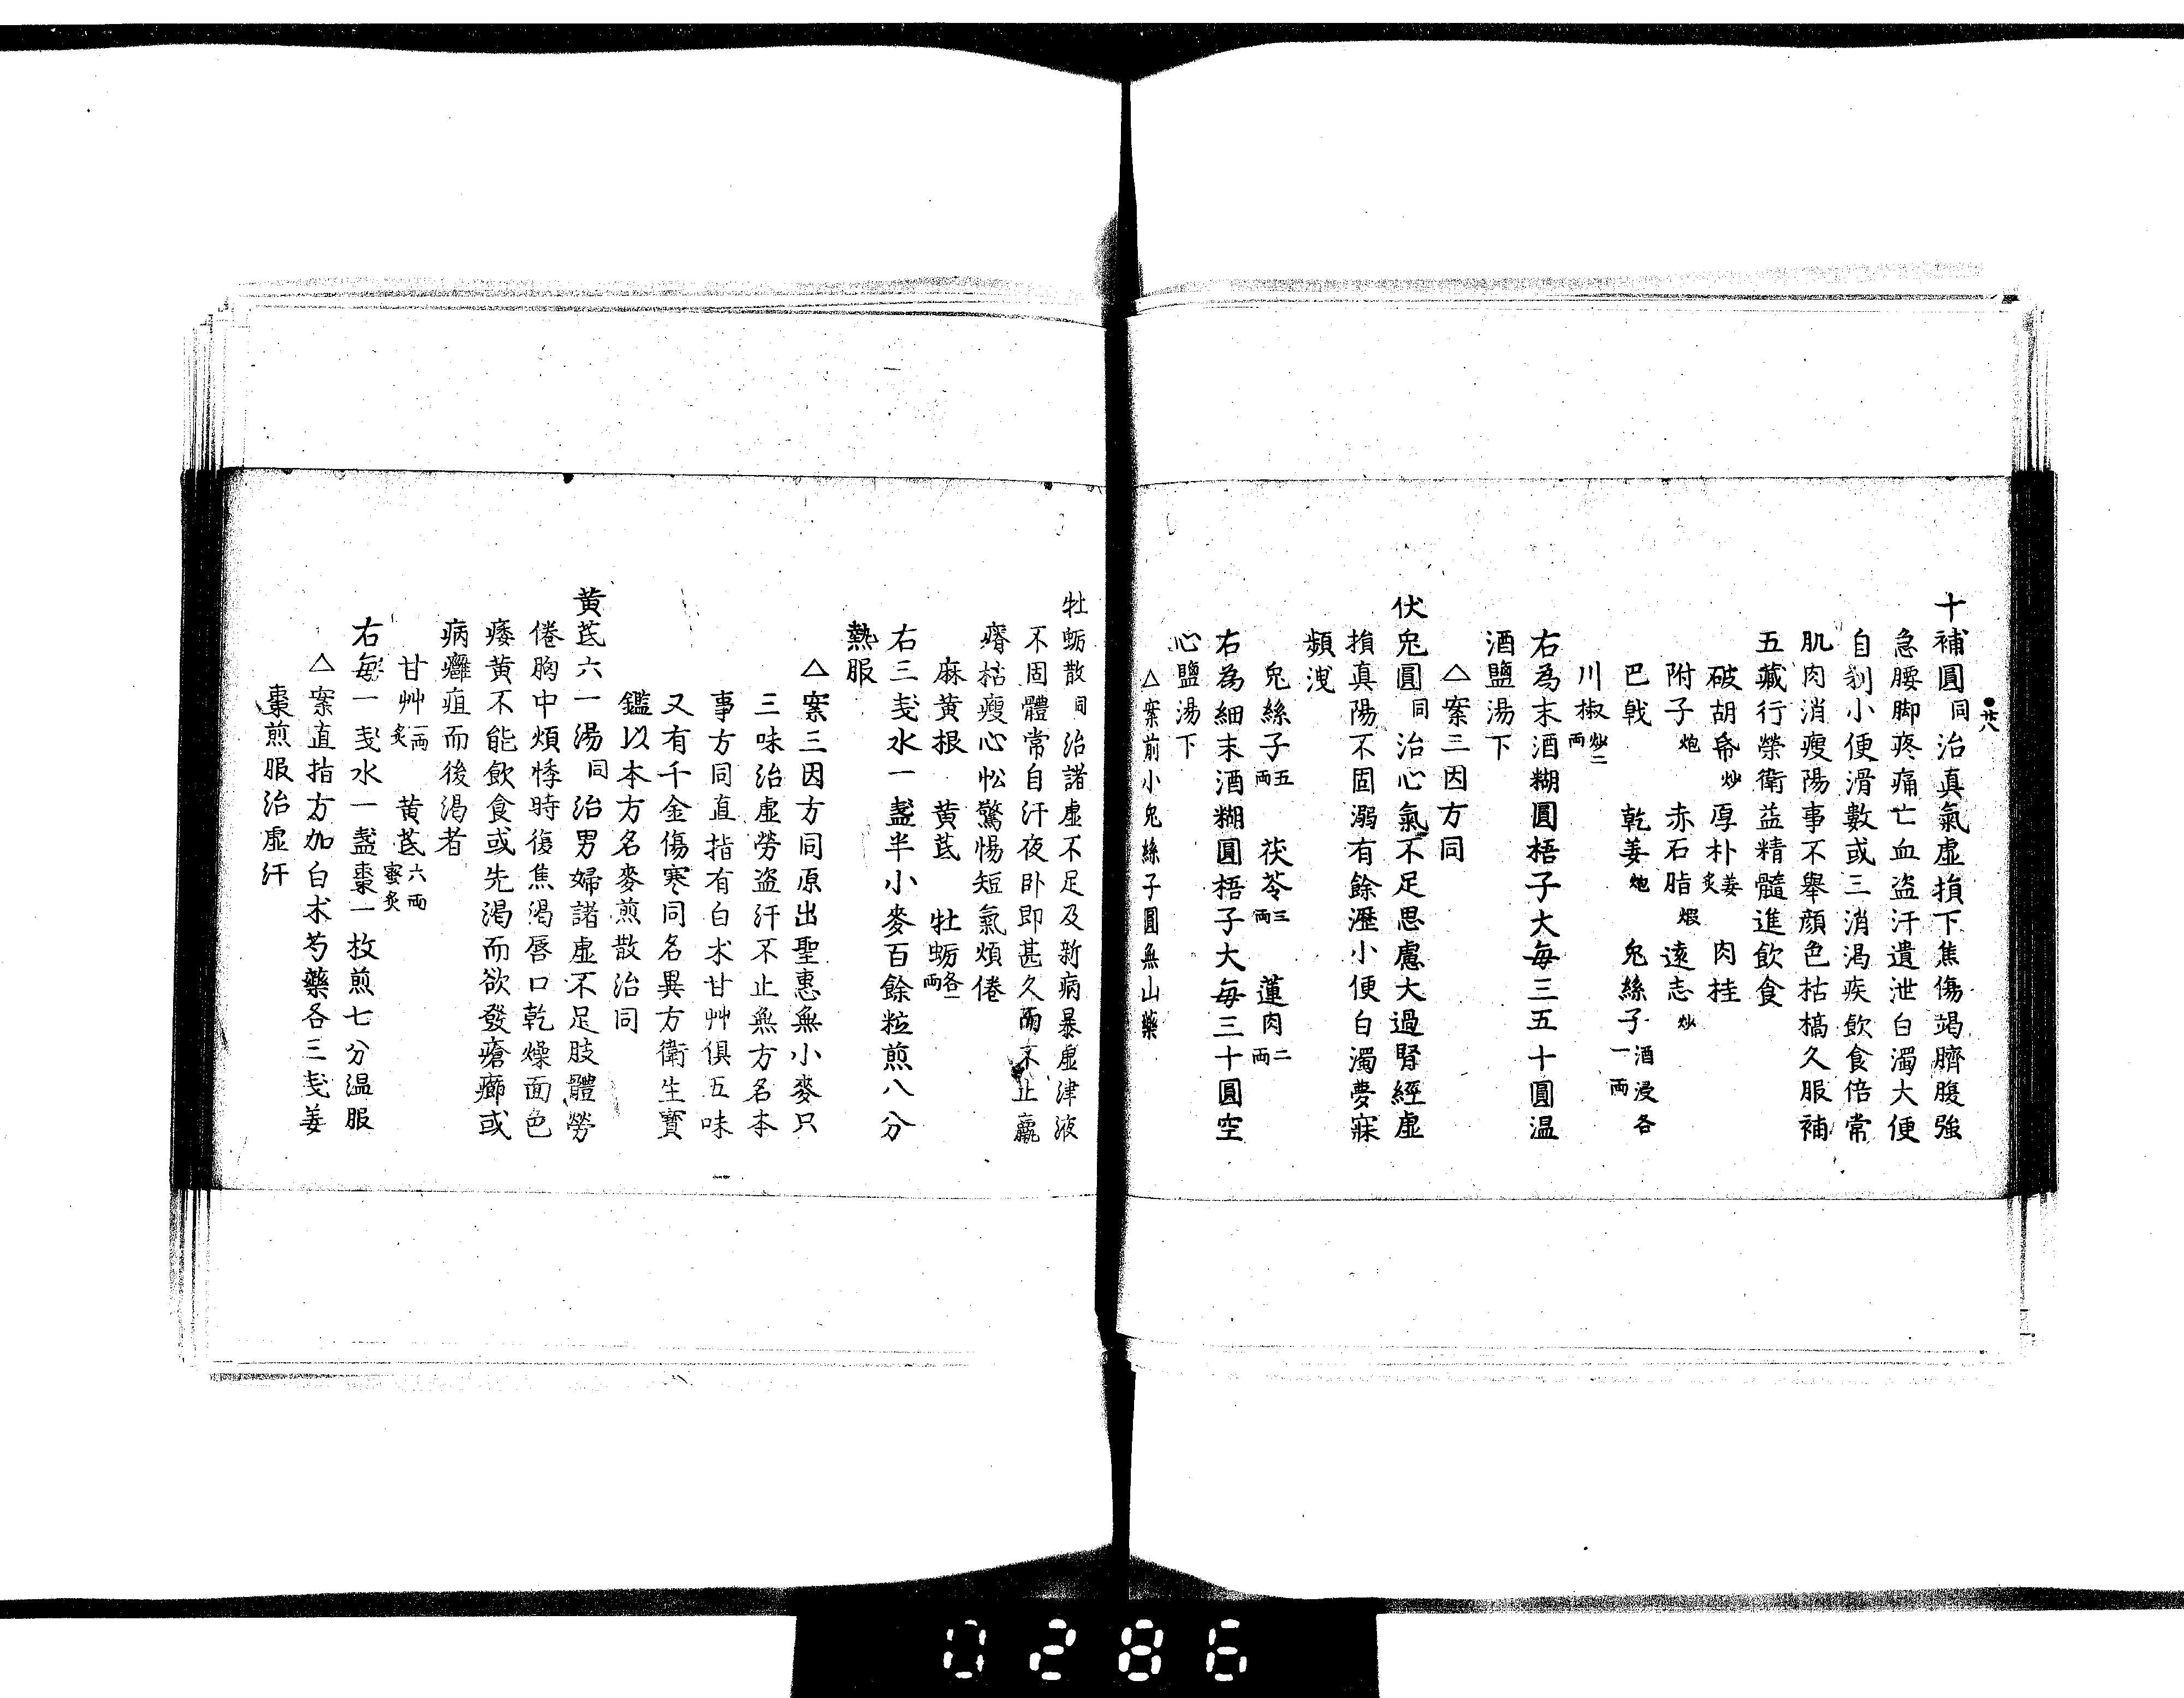 ●廿八
十補圓同治真氣虛損下焦傷竭臍腹強
急腰脚疼痛亡血盗汗遺泄白濁大便
自利小便滑數或三消渇疾飲食倍常
肌肉消瘦陽事不舉顔色枯槁久服補
五藏行榮衛益精髓進飲食
破胡帋炒 厚朴姜炙 肉桂
附子炮 赤石脂煆 遠志炒
巴戟 乾姜炮 兔絲子酒浸各一兩
川椒炒二兩
右為末酒糊圓梧子大每三五十圓温
酒鹽湯下
△案三因方同
伏兔圓同治心氣不足思慮大過腎經虛
損真陽不固溺有餘瀝小便白濁夢寐
頻洩
兔絲子五兩 茯苓三兩 蓮肉二兩
右為細末酒糊圓梧子大每三十圓空
心鹽湯下
△案前小兔絲子圓無山藥
牡蛎散同治諸虛不足及新病暴虛津液
不固體常自汗夜卧即甚久而不止羸
瘠枯瘦心忪驚惕短氣煩倦
麻黄根 黄茋 牡蛎各一兩
右三戔水一盞半小麥百餘粒煎八分
熱服
△案三因方同原出聖惠無小麥只
三味治虛勞盗汗不止無方名本
事方同直指有白朮甘艸俱五味
又有千金傷寒同名異方衛生寳
鑑以本方名麥煎散治同
黄茋六一湯同治男婦諸虛不足肢體勞
倦胸中煩悸時復焦渇唇口乾燥面色
痿黄不能飲食或先渇而欲發瘡癤或
病癰疽而後渇者
甘艸一兩炙 黄茋六兩蜜炙
右每一戔水一盞棗一枚煎七分温服
△案直指方加白朮芍藥各三戔姜
棗煎服治虛汗
0286